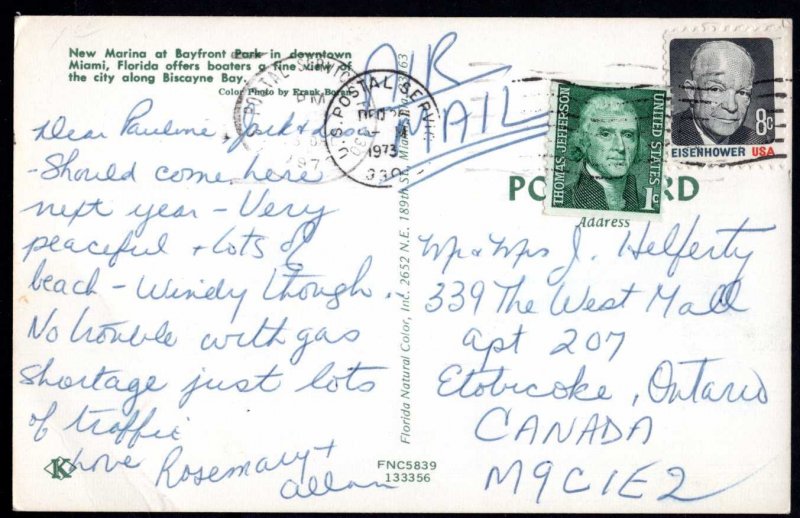 New Marina at Bayfront Park in downtown
Miami, Florida offers boaters a fine view of
the city along Biscayne Bay.
Color Photo by Frank Boran
AIR
MAIL
U.S. POSTAL SERVICE
PM
1973
330
POSTAL SERVICE
PM
197
THOMAS JEFFERSON
UNITED STATES
1c
8c
EISENHOWER USA
Dear Pauline Jack &
- Should come here
next year - Very
peaceful + lots of
beach - Windy though.
No trouble with gas
shortage just lots
of traffic
Love Rosemary +
Allan
K
Florida Natural Color, Inc. 2652 N.E. 189th St., Miami, Fla. 33163
FNC5839
133356
POST CARD
Address
Mr & Mrs J. Helferty
339 The West Mall
apt 207
Etobicoke, Ontario
CANADA
M9C1E2